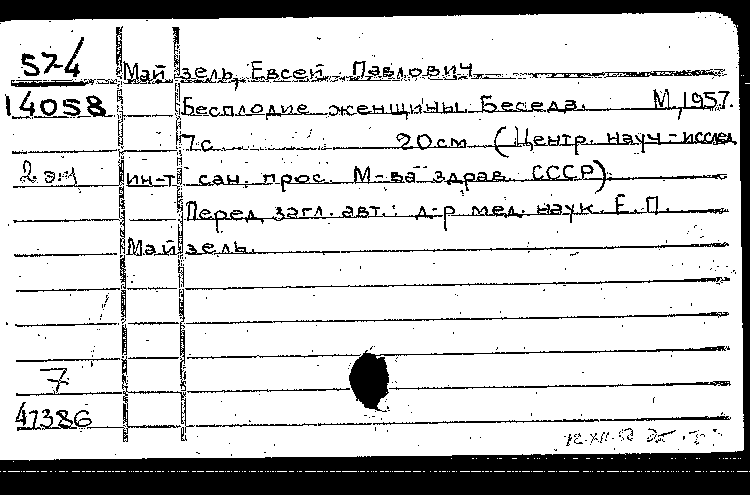 57-4 Майзель, Евсей Павлович
14058 Бесплодие женщины. Беседа. М, 1957.
7с 20см (Центр. науч-исслед
2 эк ин-т сан. прос. М-ва здрав. СССР).
Перед загл. авт.: д-р мед. наук Е. П.
Майзель.
7
47386